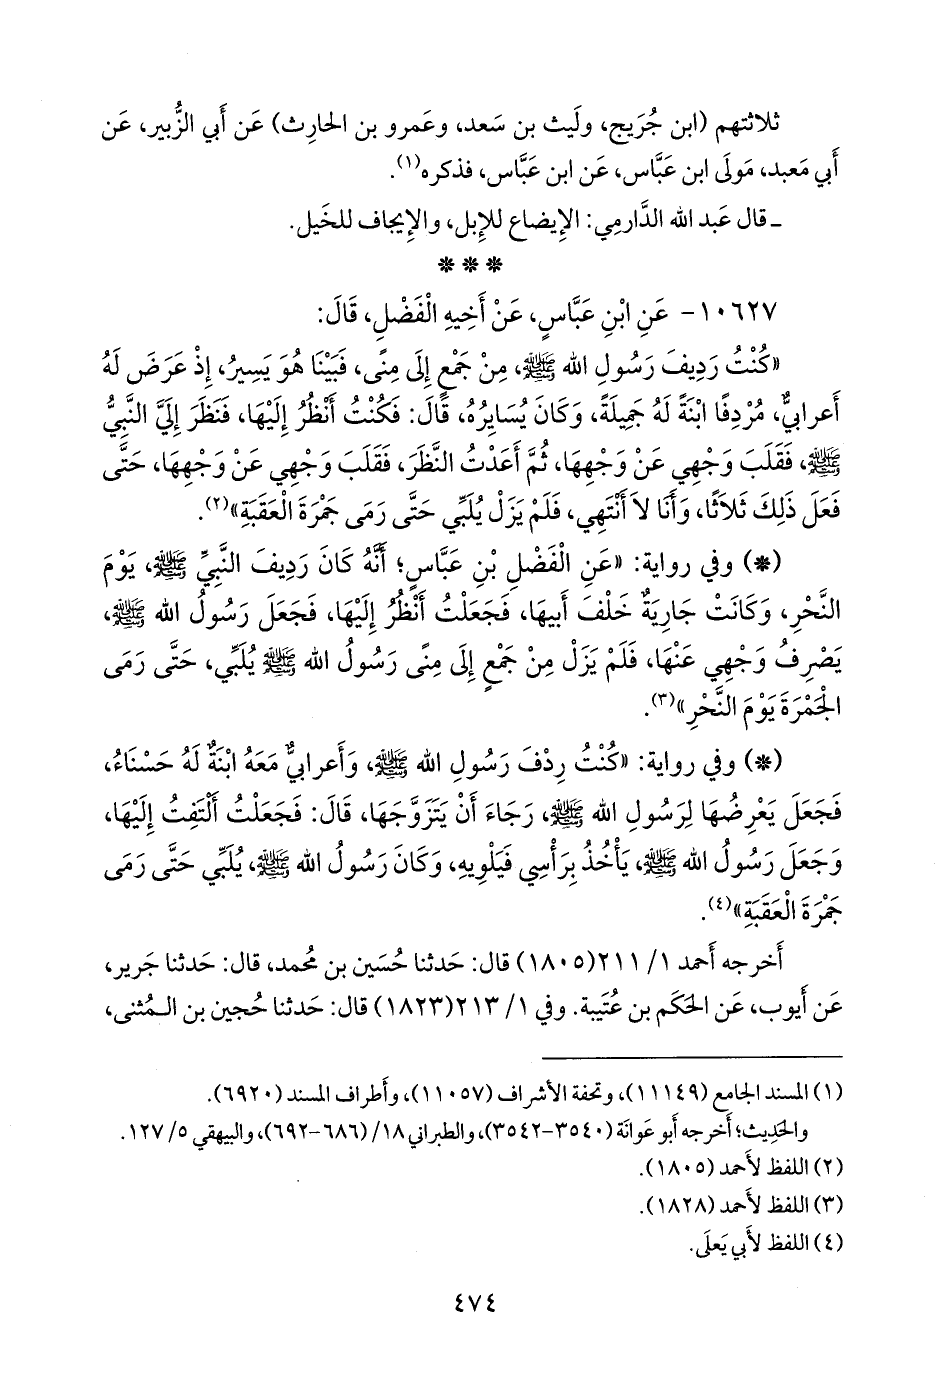 ثلاثتهم (ابن جُرَيج، ولَيث بن سَعد، وعَمرو بن الحارِث) عَن أَبي الزُّبير، عَن
أَبي مَعبد، مَولَى ابن عَبَّاس، عَن ابن عَبَّاس، فذكره(١).
ـ قال عَبد الله الدَّارِمِي: الإِيضاع للإِبل، والإِيجاف للخَيل.
* * *
١٠٦٢٧- عَنِ ابْنِ عَبَّاسٍ، عَنْ أَخِيهِ الْفَضْلِ، قَالَ:
«كُنْتُ رَدِيفَ رَسُولِ الله ﷺ، مِنْ جَمْعٍ إِلَى مِنًى، فَبَيْنَا هُوَ يَسِيرُ، إِذْ عَرَضَ لَهُ
أَعرابيٌّ، مُرْدِفًا ابْنَةً لَهُ جَمِيلَةً، وَكَانَ يُسَايِرُهُ، قَالَ: فَكُنْتُ أَنْظُرُ إِلَيْهَا، فَنَظَرَ إِلَيَّ النَّبِيُّ
ﷺ، فَقَلَبَ وَجْهِي عَنْ وَجْهِهَا، ثُمَّ أَعَدْتُ النَّظَرَ، فَقَلَبَ وَجْهِي عَنْ وَجْهِهَا، حَتَّى
فَعَلَ ذَلِكَ ثَلاَثًا، وَأَنَا لاَ أَنْتَهِي، فَلَمْ يَزَلْ يُلَبِّي حَتَّى رَمَى جَمْرَةَ الْعَقَبَةِ»(٢).
(*) وفي رواية: «عَنِ الْفَضْلِ بْنِ عَبَّاسٍ؛ أَنَّهُ كَانَ رَدِيفَ النَّبِيِّ ﷺ، يَوْمَ
النَّحْرِ، وَكَانَتْ جَارِيَةٌ خَلْفَ أَبِيهَا، فَجَعَلْتُ أَنْظُرُ إِلَيْهَا، فَجَعَلَ رَسُولُ الله ﷺ،
يَصْرِفُ وَجْهِي عَنْهَا، فَلَمْ يَزَلْ مِنْ جَمْعٍ إِلَى مِنًى رَسُولُ الله ﷺ يُلَبِّي، حَتَّى رَمَى
الْجَمْرَةَ يَوْمَ النَّحْرِ»(٣).
(*) وفي رواية: «كُنْتُ رِدْفَ رَسُولِ الله ﷺ، وَأَعرابيٌّ مَعَهُ ابْنَةٌ لَهُ حَسْنَاءُ،
فَجَعَلَ يَعْرِضُهَا لِرَسُولِ الله ﷺ، رَجَاءَ أَنْ يَتَزَوَّجَهَا، قَالَ: فَجَعَلْتُ أَلْتَفِتُ إِلَيْهَا،
وَجَعَلَ رَسُولُ الله ﷺ، يَأْخُذُ بِرَأْسِي فَيَلْوِيهِ، وَكَانَ رَسُولُ الله ﷺ، يُلَبِّي حَتَّى رَمَى
جَمْرَةَ الْعَقَبَةِ»(٤).
أَخرجه أَحمد ١/ ٢١١(١٨٠٥) قال: حَدثنا حُسَين بن مُحمد، قال: حَدثنا جَرير،
عَن أَيوب، عَن الحَكم بن عُتَيبة. وفي ١/ ٢١٣(١٨٢٣) قال: حَدثنا حُجين بن الـمُثنى،
(١) المسند الجامع (١١١٤٩)، وتحفة الأشراف (١١٠٥٧)، وأَطراف المسند (٦٩٢٠).
والحَدِيث؛ أَخرجه أَبو عَوانَة (٣٥٤٠-٣٥٤٢)، والطبراني ١٨/ (٦٨٦-٦٩٢)، والبيهقي ٥/ ١٢٧.
(٢) اللفظ لأَحمد (١٨٠٥).
(٣) اللفظ لأَحمد (١٨٢٨).
(٤) اللفظ لأَبي يَعلَى.
٤٧٤